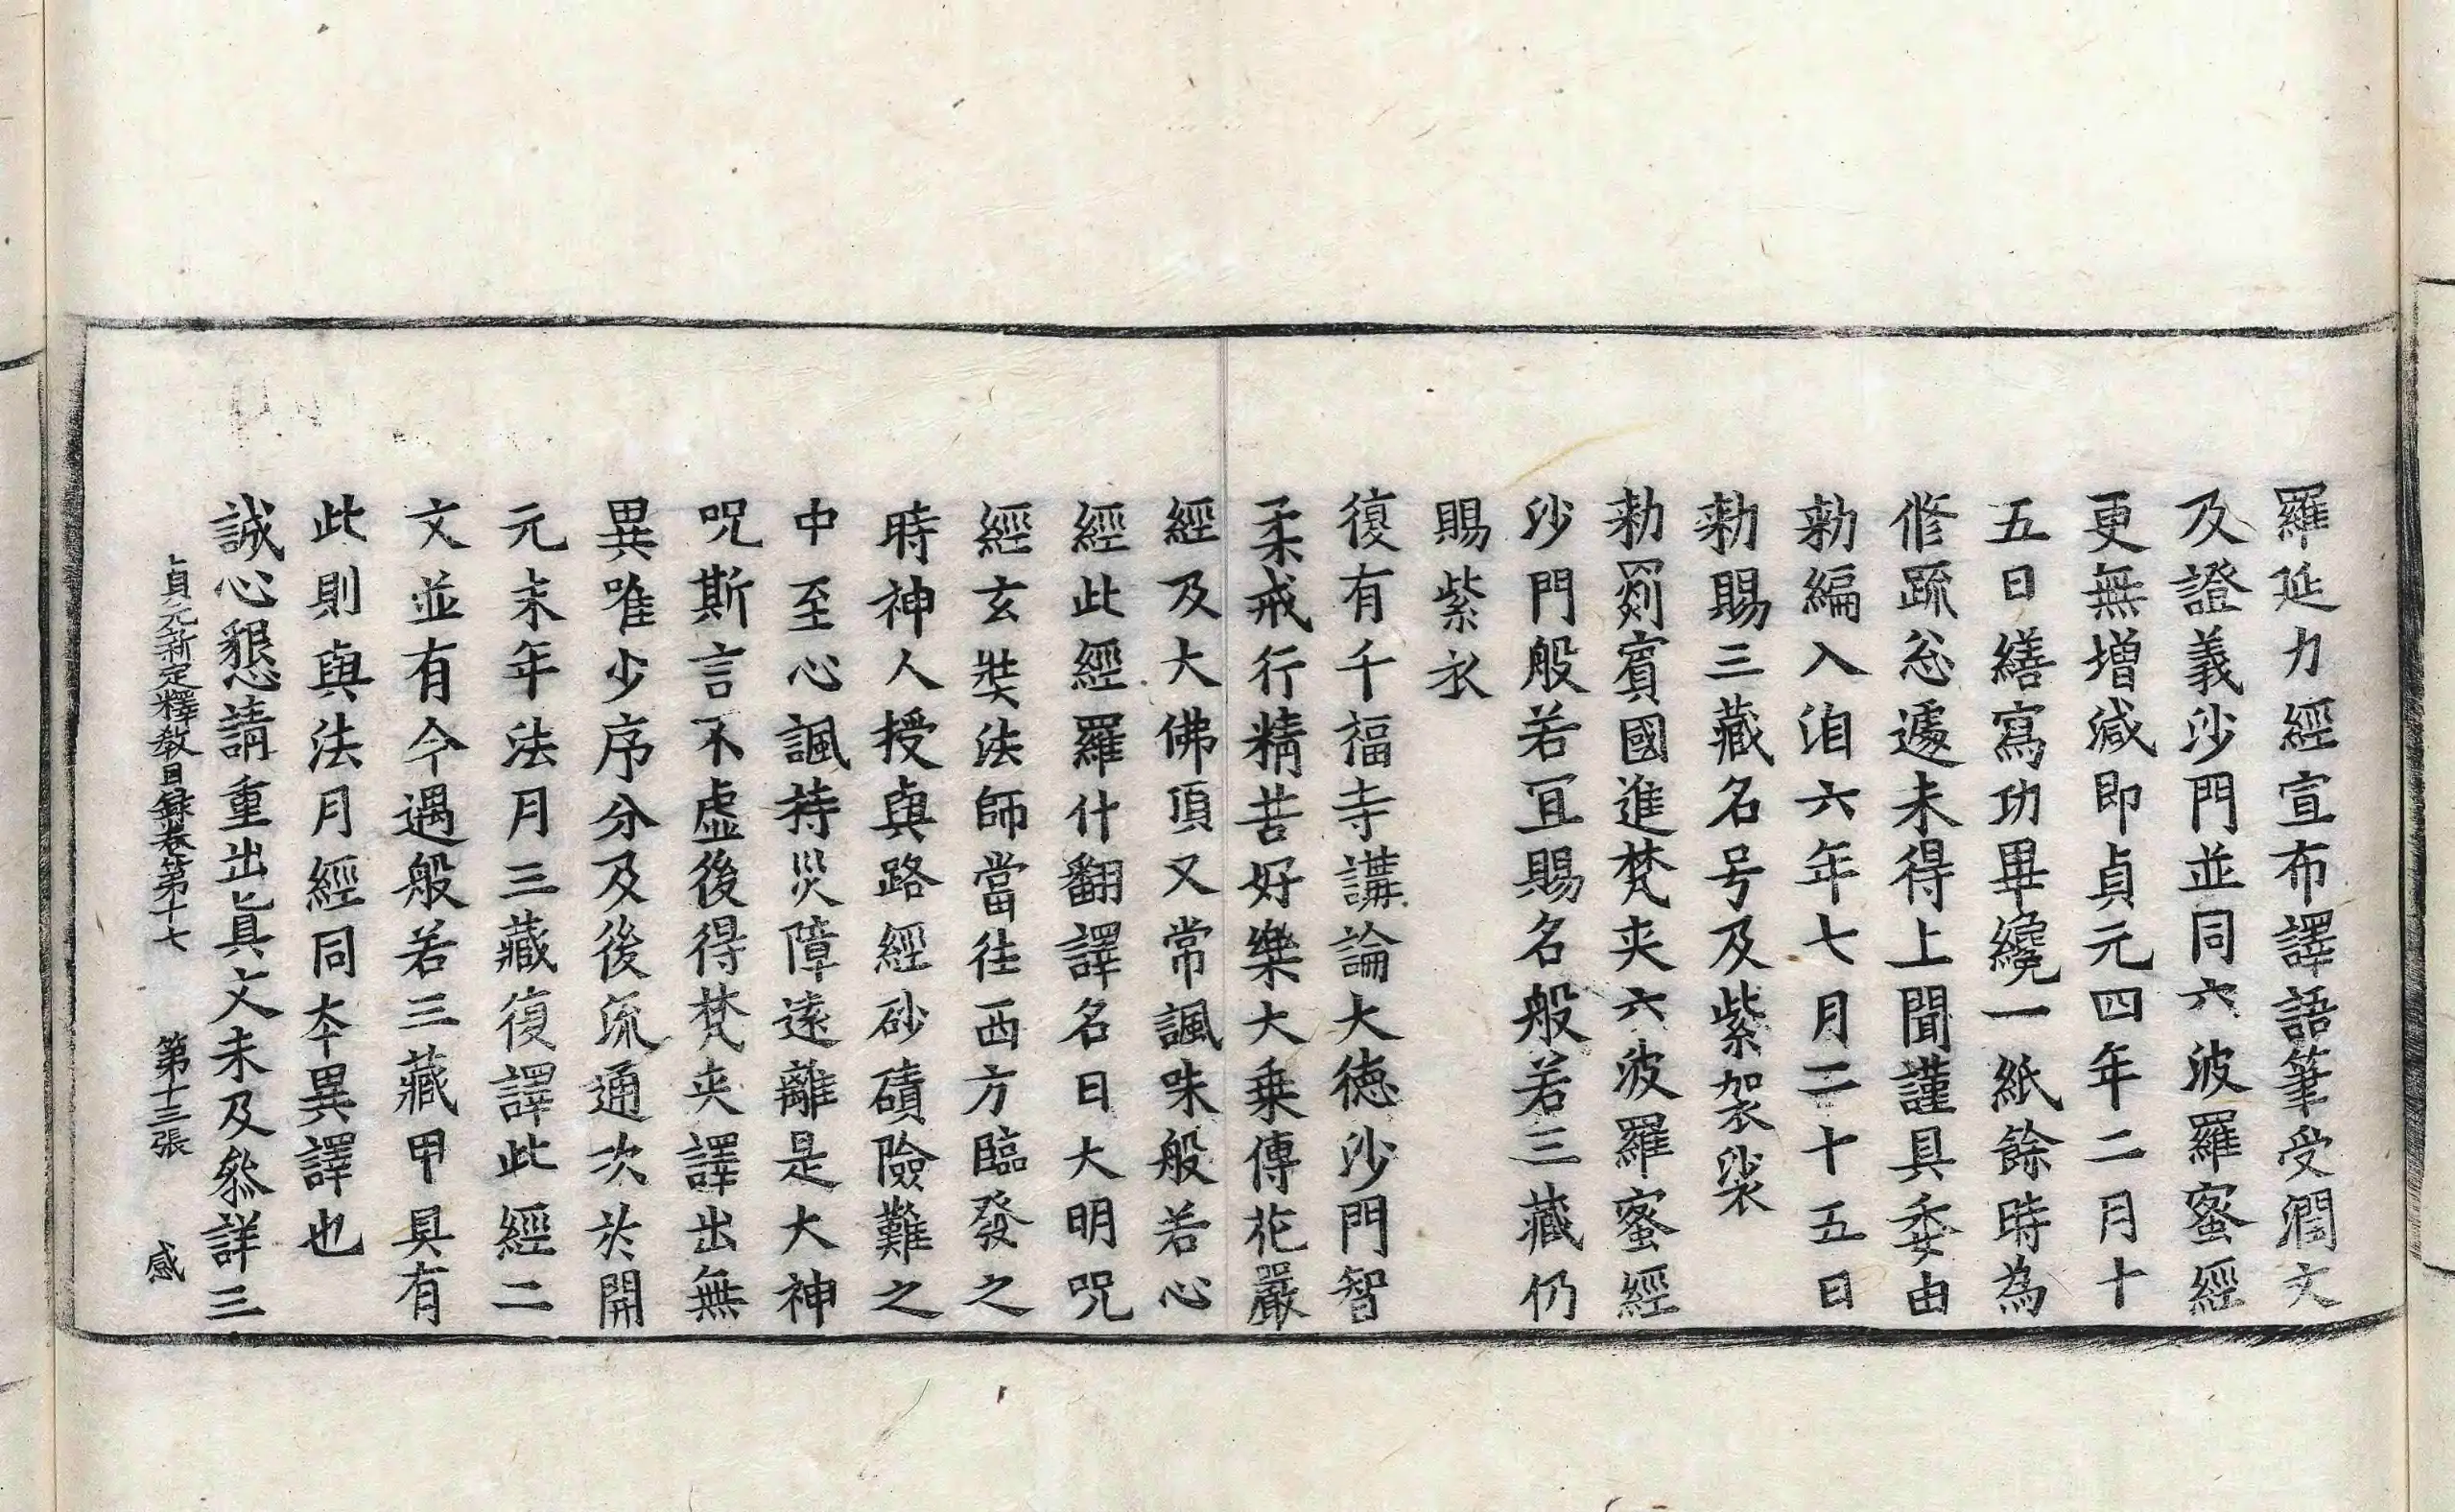 羅延力經宣布譯語筆受潤文
及證義沙門並同六波羅蜜經
更無增減即貞元四年二月十
五日繕寫功畢纔一紙餘時為
修䟽忩遽未得上聞謹具委由
勑編入洎六年七月二十五日
勑賜三藏名号及紫袈裟
勑罽賓國進梵夾六波羅蜜經
沙門般若冝賜名般若三藏仍
賜紫衣
復有千福寺講論大德沙門智
柔戒行精苦好樂大乗傳花嚴
經及大佛頂又常諷味般若心
經此經羅什翻譯名曰大明呪
經玄奘法師當往西方臨發之
時神人授與路經砂磧險難之
中至心諷持災障遠離是大神
呪斯言不虛後得梵夾譯出無
異唯少序分及後流通次於開
元末年法月三藏復譯此經二
文並有今遇般若三藏甲具有
此則與法月經同夲異譯也
誠心懇請重出具文未及叅詳三
貞元新定釋教目録卷第十七 第十三張 感